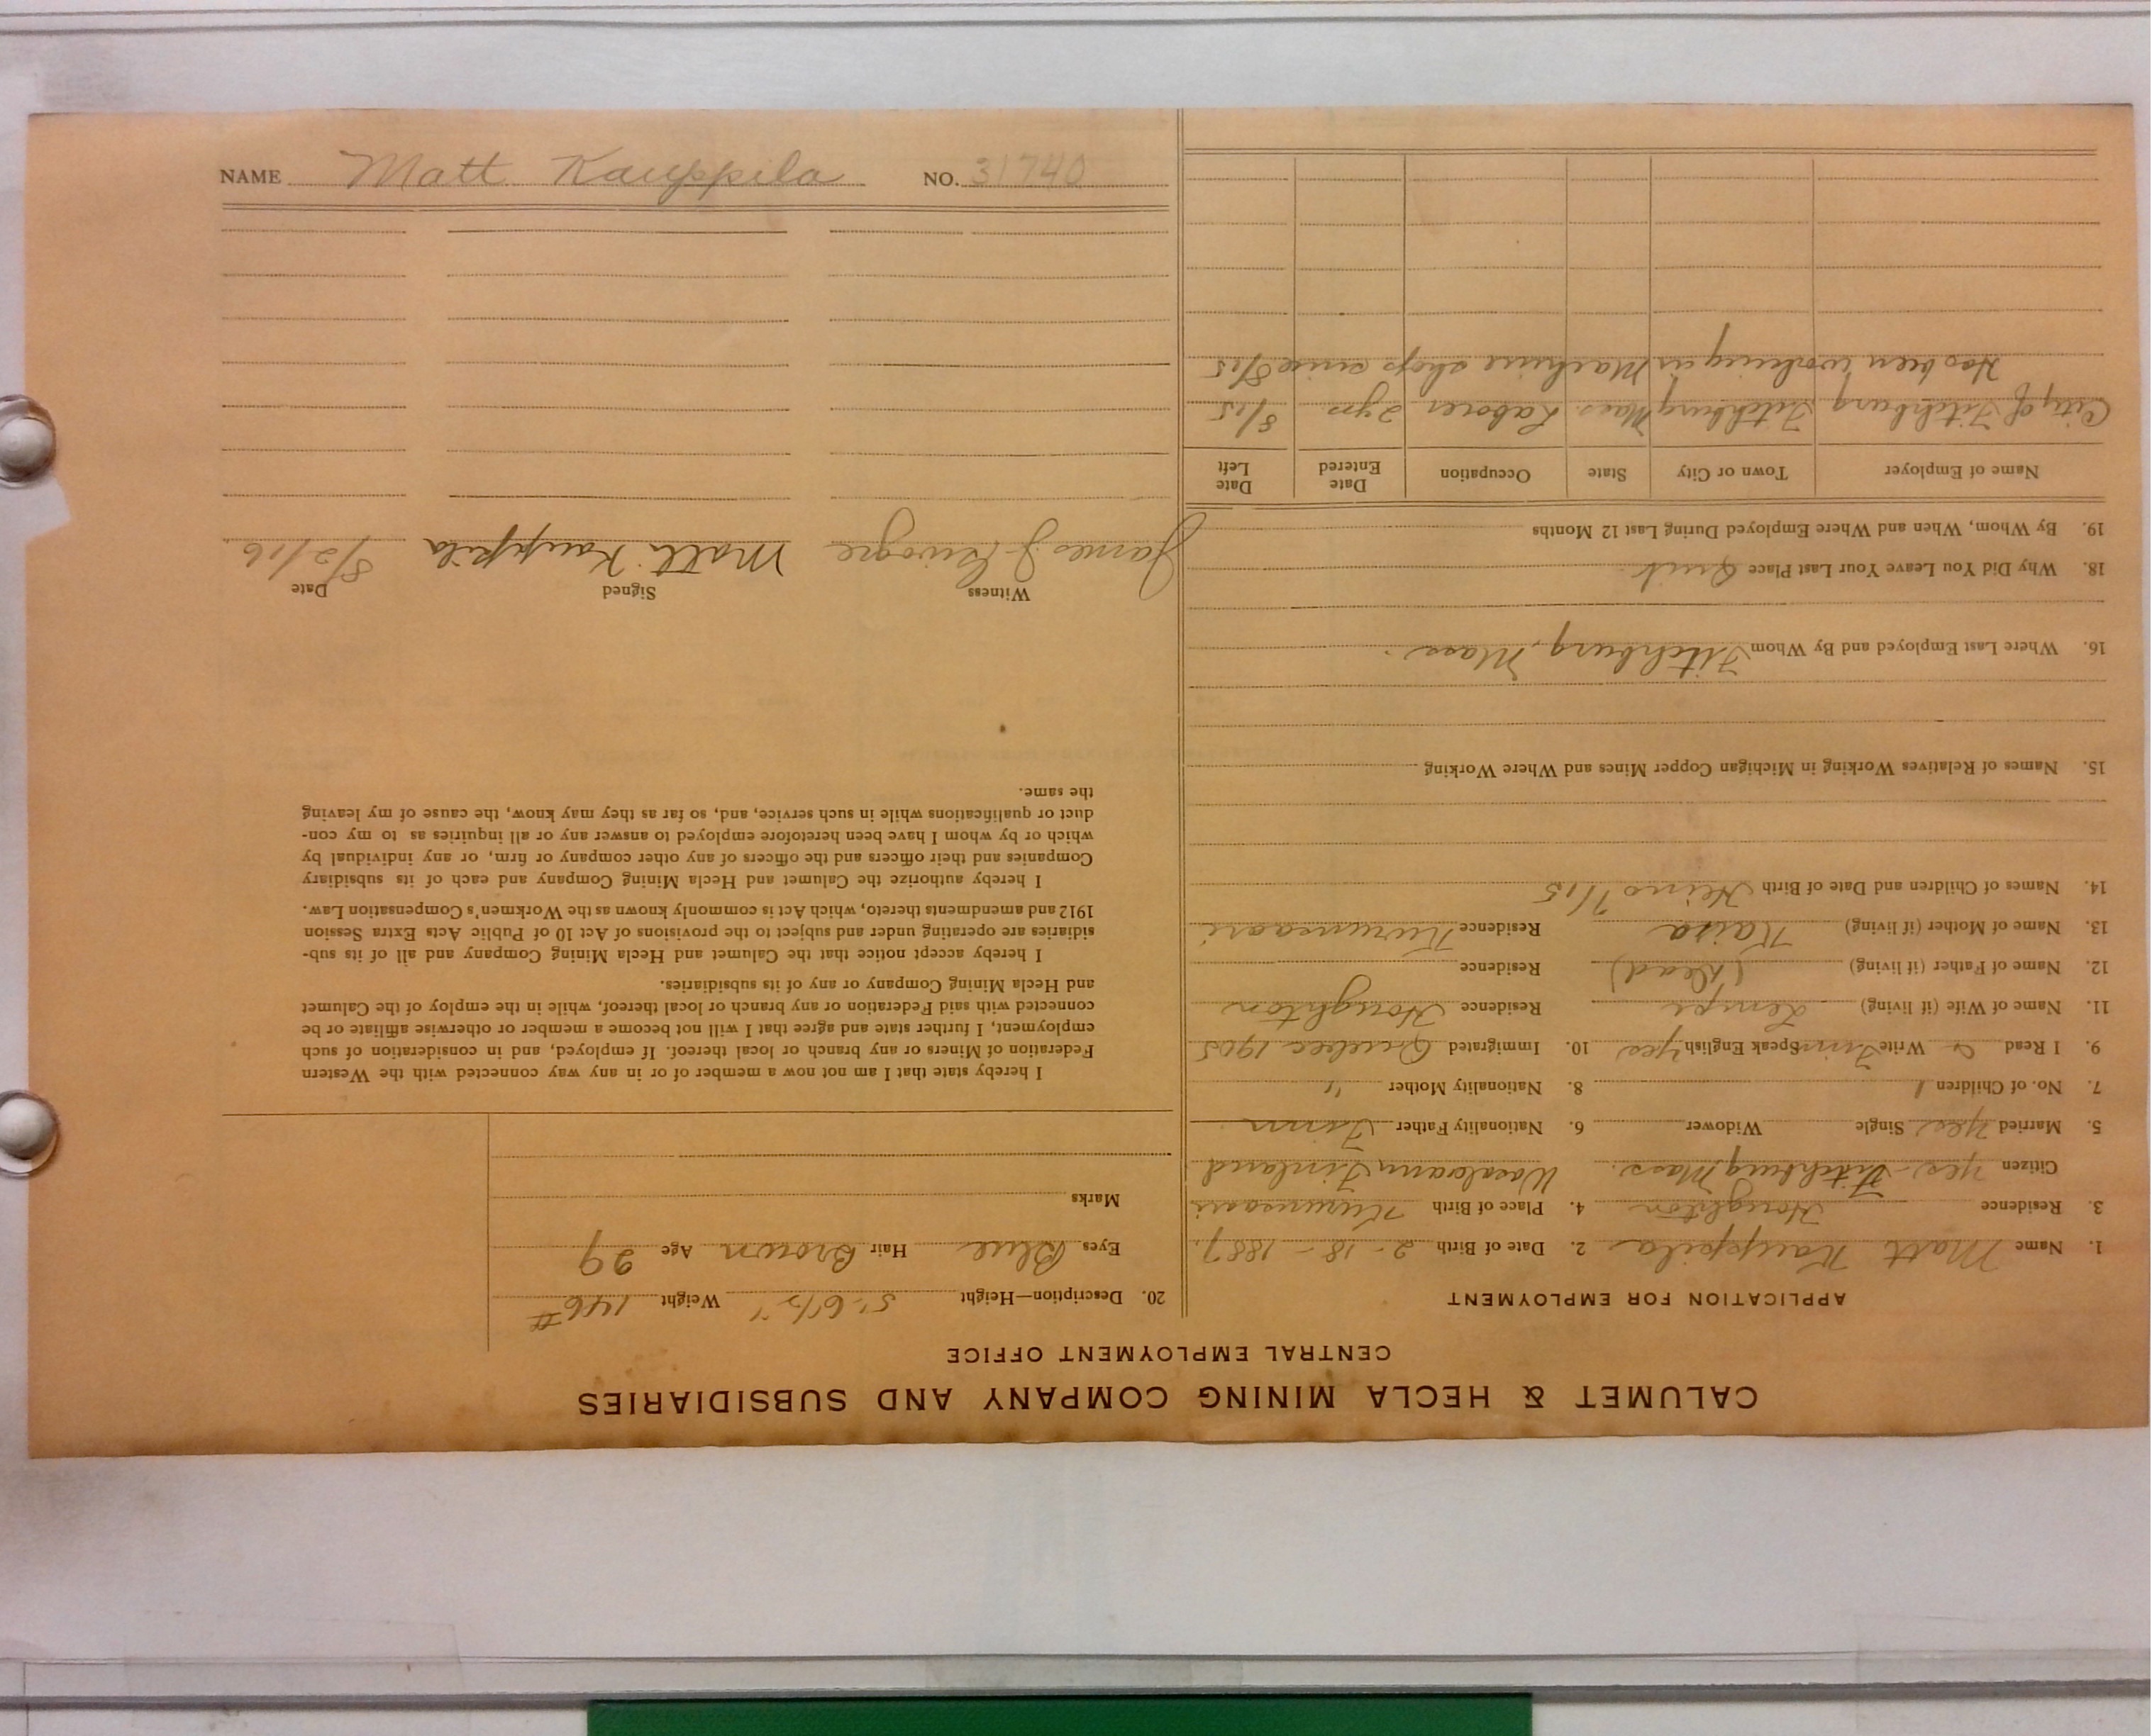 NAME Matt Kauppila NO. 31740
CALUMET & HECLA MINING COMPANY AND SUBSIDIARIES
CENTRAL EMPLOYMENT OFFICE
APPLICATION FOR EMPLOYMENT
1. Name Matt Kauppila 2. Date of Birth 2-18-1887
3. Residence Houghton 4. Place of Birth
Citizen Yes - Fitchburg Mass. Finland
5. Married Yes Single Widower 6. Nationality Father Finn
7. No. of Children 1 8. Nationality Mother "
9. I Read & Write Finn Speak English Yes 10. Immigrated Quebec 1905
11. Name of Wife (if living) Lempi Residence Houghton
12. Name of Father (if living) (Dead) Residence
13. Name of Mother (if living) Kaisa Residence
14. Names of Children and Date of Birth Heino 7/15
15. Names of Relatives Working in Michigan Copper Mines and Where Working
16. Where Last Employed and By Whom Fitchburg, Mass.
18. Why Did You Leave Your Last Place Quit
19. By Whom, When and Where Employed During Last 12 Months
Name of Employer Town or City State Occupation Date Entered Date Left
City of Fitchburg Fitchburg Mass. Laborer 2 yrs 8/15
Has been working in Machine shop since 8/15
20. Description—Height 5'-6 1/2" Weight 146 #
Eyes Blue Hair Brown Age 29
Marks
I hereby state that I am not now a member of or in any way connected with the Western
Federation of Miners or any branch or local thereof. If employed, and in consideration of such
employment, I further state and agree that I will not become a member or otherwise affiliate or be
connected with said Federation or any branch or local thereof, while in the employ of the Calumet
and Hecla Mining Company or any of its subsidiaries.
I hereby accept notice that the Calumet and Hecla Mining Company and all of its sub-
sidiaries are operating under and subject to the provisions of Act 10 of Public Acts Extra Session
1912 and amendments thereto, which Act is commonly known as the Workmen's Compensation Law.
I hereby authorize the Calumet and Hecla Mining Company and each of its subsidiary
Companies and their officers and the officers of any other company or firm, or any individual by
which or by whom I have been heretofore employed to answer any or all inquiries as to my con-
duct or qualifications while in such service, and, so far as they may know, the cause of my leaving
the same.
Witness Signed Date
James J Matti Kauppila 8/2/16